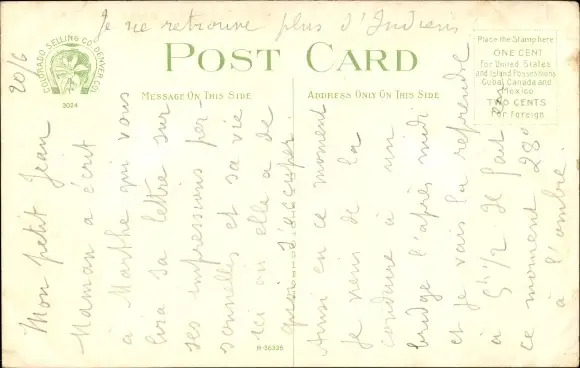 Je ne retrouve plus d'Indiens
POST CARD
COLORADO SELLING CO. DENVER COLO.
3024
MESSAGE ON THIS SIDE
ADDRESS ONLY ON THIS SIDE
Place the Stamp here
ONE CENT
for United States
and Island Possessions
Cuba, Canada and
Mexico
TWO CENTS
for Foreign
20/6
Mon petit Jean
Maman a écrit
à Marthe qui vous
lira sa lettre sur
ses impressions per-
sonnelles et sa vie
ici où elle a de
quoi s'occuper.
Ainsi en ce moment
je viens de la
conduire à un
bridge l'après midi
et je vais la reprendre
à 5h 1/2. Il fait en
ce moment 28°
à l'ombre.
R-36335